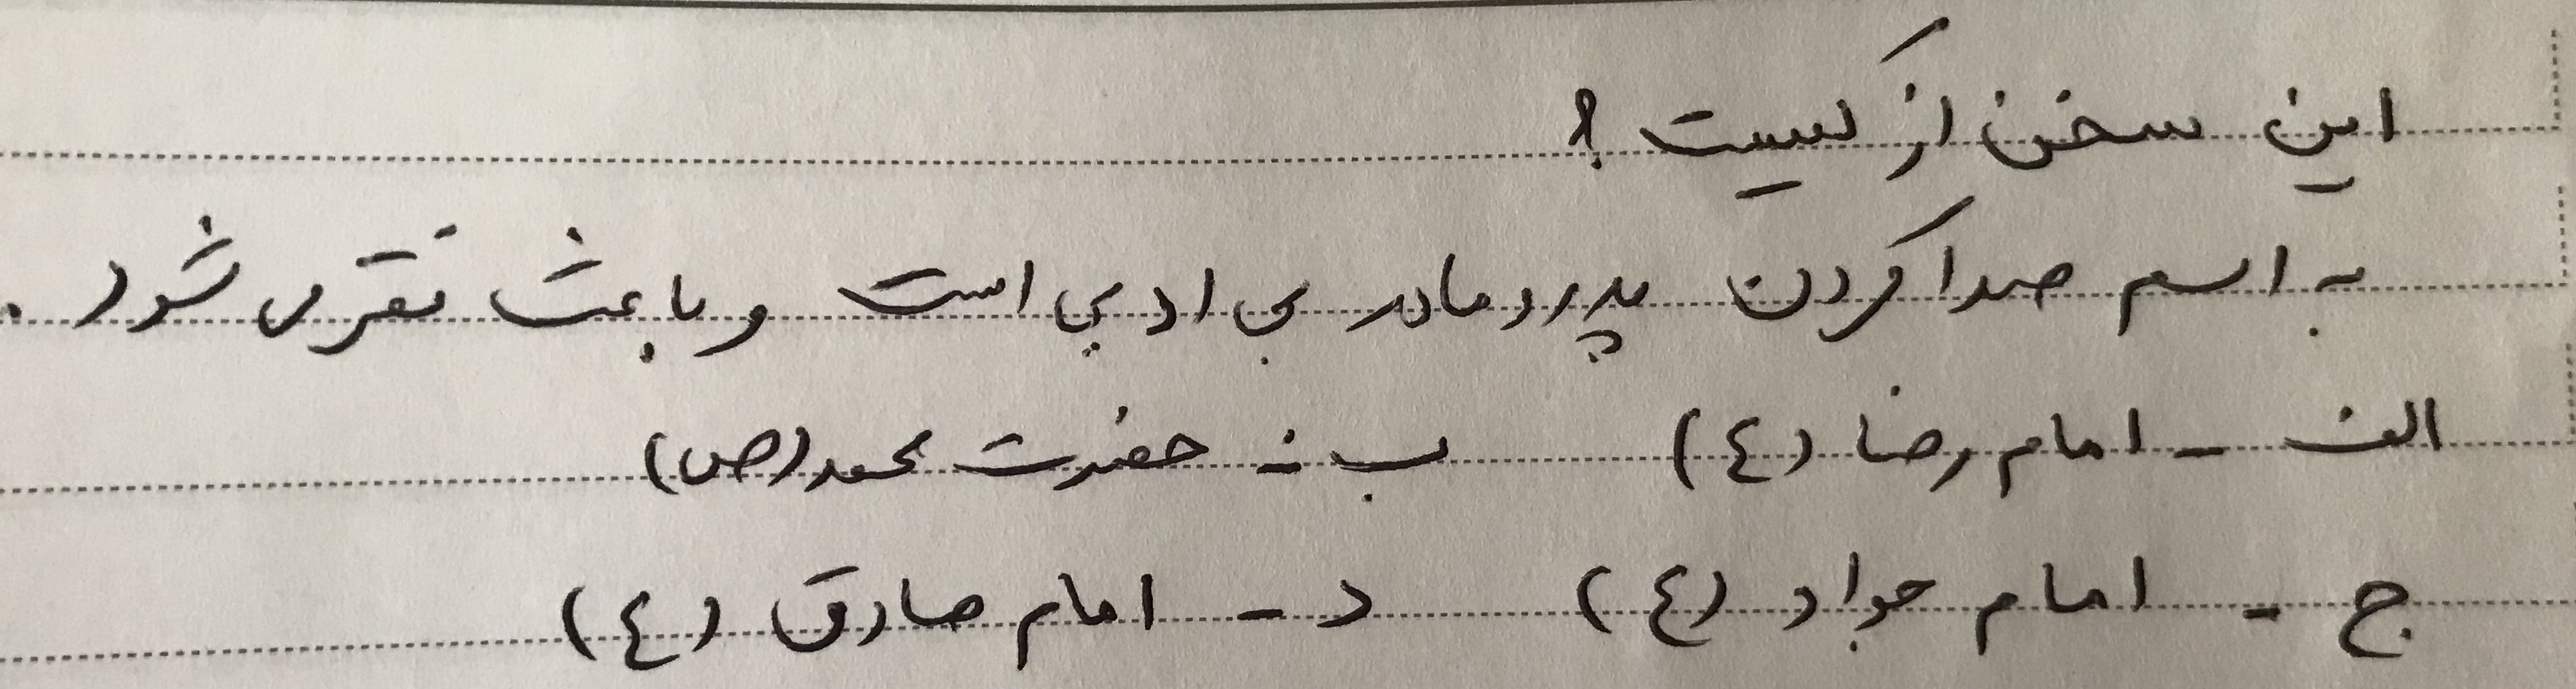 این سخن از کیست ؟
به اسم صدا کردن پدر و مادر بی ادبی است و باعث فقر می شود .
الف - امام رضا (ع) ب - حضرت محمد (ص)
ج - امام جواد (ع) د - امام صادق (ع)